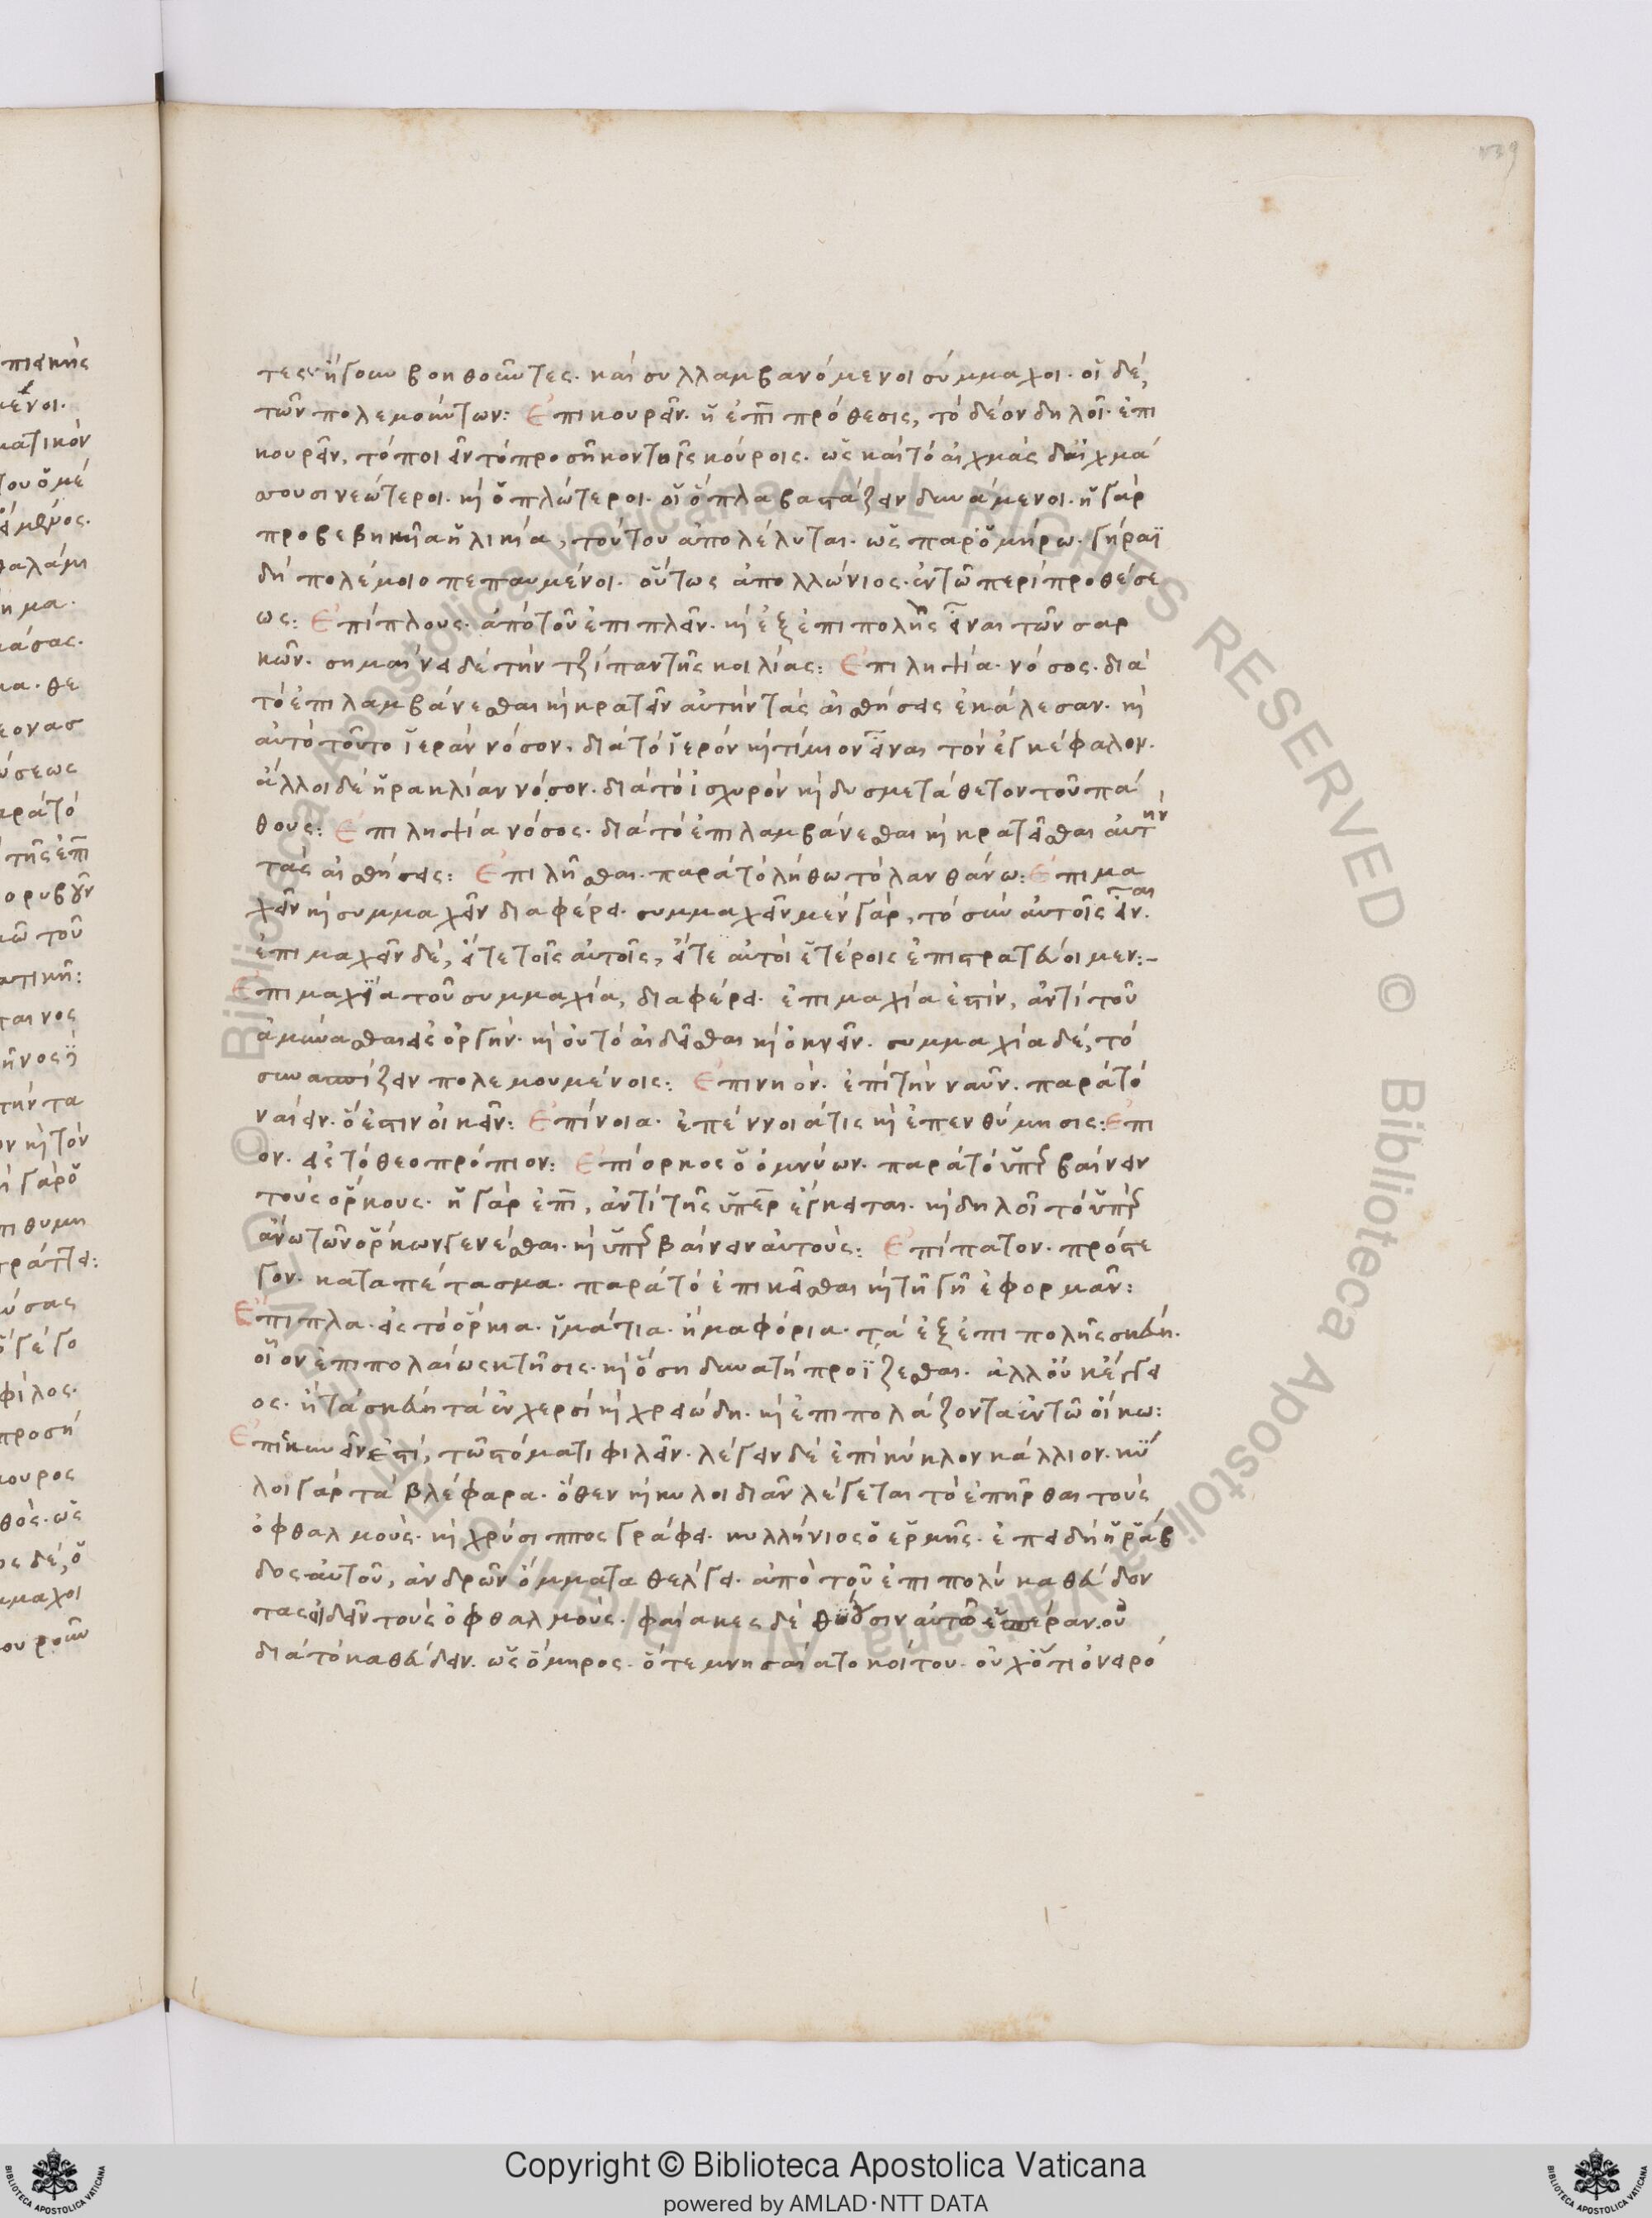 τες ἤγουν βοηθοῦντες. καὶ συλλαμβανόμενοι σύμμαχοι. οἱ δέ,
τῶν πολεμούντων: Ἐπικουρεῖν. ἡ ἐπὶ πρόθεσις, τὸ δέον δηλοῖ. ἐπι
κουρεῖν, τὸ ποιεῖν τὸ προσῆκον τοῖς κούροις. ὡς καὶ τὸ αἰχμὰς δ' αἰχμά
σουσι νεώτεροι. καὶ ὁπλώτεροι. οἱ ὅπλα βαστάζειν δυνάμενοι. ἡ γὰρ
προβεβηκυῖα ἡλικία, τούτου ἀπολέλυται. ὡς παρ' ὁμήρω. γήραϊ
δὴ πολέμοιο πεπαυμένοι. οὕτως ἀπολλώνιος. ἐν τῶ περὶ προθέσε
ως: Ἐπίπλους. ἀπὸ τοῦ ἐπιπλεῖν. καὶ ἐξ ἐπιπολῆς εἶναι τῶν σαρ
κῶν. σημαίνει δὲ τὴν τζίπαν τῆς κοιλίας: Ἐπιληψία. νόσος. διὰ
τὸ ἐπιλαμβάνεσθαι καὶ κρατεῖν αὐτὴν τὰς αἰσθήσεις ἐκάλεσαν. καὶ
αὐτὸ τοῦτο ἱερὰν νόσον, διὰ τὸ ἱερὸν καὶ τίμιον εἶναι τὸν ἐγκέφαλον.
ἄλλοι δὲ ἡρακλίαν νόσον. διὰ τὸ ἰσχυρὸν καὶ δυσμετάθετον τοῦ πά
θους: Ἐπιληψία νόσος. διὰ τὸ ἐπιλαμβάνεσθαι καὶ κρατεῖσθαι αὐτὴν
τὰς αἰσθήσεις: Ἐπιλῆσθαι. παρὰ τὸ λήθω τὸ λανθάνω: Ἐπιμα
χεῖν καὶ συμμαχεῖν διαφέρει. συμμαχεῖν μὲν γὰρ, τὸ σὺν αὐτοῖς εἶναι.
ἐπιμαχεῖν δέ, εἴτε τοῖς αὐτοῖς, εἴτε αὐτοὶ ἑτέροις ἐπιστρατεύοιμεν:–
Ἐπιμαχία τοῦ συμμαχία, διαφέρει. ἐπιμαχία ἐστὶν, ἀντὶ τοῦ
ἀμύνασθαι εἰς ὀργήν. καὶ οὐ τὸ αἰδεῖσθαι καὶ ὀκνεῖν. συμμαχία δέ, τὸ
συνασπίζειν πολεμουμένοις: Ἐπινηόν. ἐπὶ τὴν ναῦν. παρὰ τὸ
ναίειν. ὅ ἐστιν οἰκεῖν: Ἐπίνοια. ἐπέννοιά τις καὶ ἐπενθύμησις: Ἐπι
ον. εἰς τὸ θεοπρόπιον: Ἐπίορκος ὁ ὀμνύων. παρὰ τὸ ὑπερβαίνειν
τοὺς ὅρκους. ἡ γὰρ ἐπὶ, ἀντὶ τῆς ὑπὲρ ἔγκειται. καὶ δηλοῖ τὸ ὑπὲρ
ἄνω τῶν ὅρκων γενέσθαι. καὶ ὑπερβαίνειν αὐτούς: Ἐπίπατον. πρόστε
γον. καταπέτασμα. παρὰ τὸ ἐπικεῖσθαι καὶ τῆ γῆ ἐφορμᾶν:
Ἔπιπλα. εἰς τὸ ὅρκια. ἱμάτια. ἢ μαφόρια. τὰ ἐξ ἐπιπολῆς σκεύη.
οἷον ἐπιπολαίως κτῆσις. καὶ ὅση δυνατὴ προΐζεσθαι. ἀλλ' οὐκ ἔγγει
ος. ἢ τὰ σκεύη τὰ ἐν χερσὶ καὶ χρειώδη. καὶ ἐπιπολάζοντα ἐν τῶ οἴκω:
Ἐπικυνεῖν ἐστί, τῶ στόματι φιλεῖν. λέγειν δὲ ἐπὶ κύκλον κάλλιον. κύ
λοι γὰρ τὰ βλέφαρα. ὅθεν καὶ κυλοιδιᾶν λέγεται τὸ ἐπῆρθαι τοὺς
ὀφθαλμούς. καὶ χρύσιππος γράφει. κυλλήνιος ὁ ἑρμῆς. ἐπειδὴ ἡ ῥάβ
δος αὐτοῦ, ἀνδρῶν ὄμματα θέλγει. ἀπὸ τοῦ ἐπιπολὺ καθεύδον
τας οἰδεῖν τοὺς ὀφθαλμούς. φαίακες δὲ θύουσιν αὐτῶ ἑσπέραν. οὐ
διὰ τὸ καθεύδειν. ὡς ὅμηρος. ὅτε μνησαίατο κοίτου. οὐχ ὅτι ὀνειρό